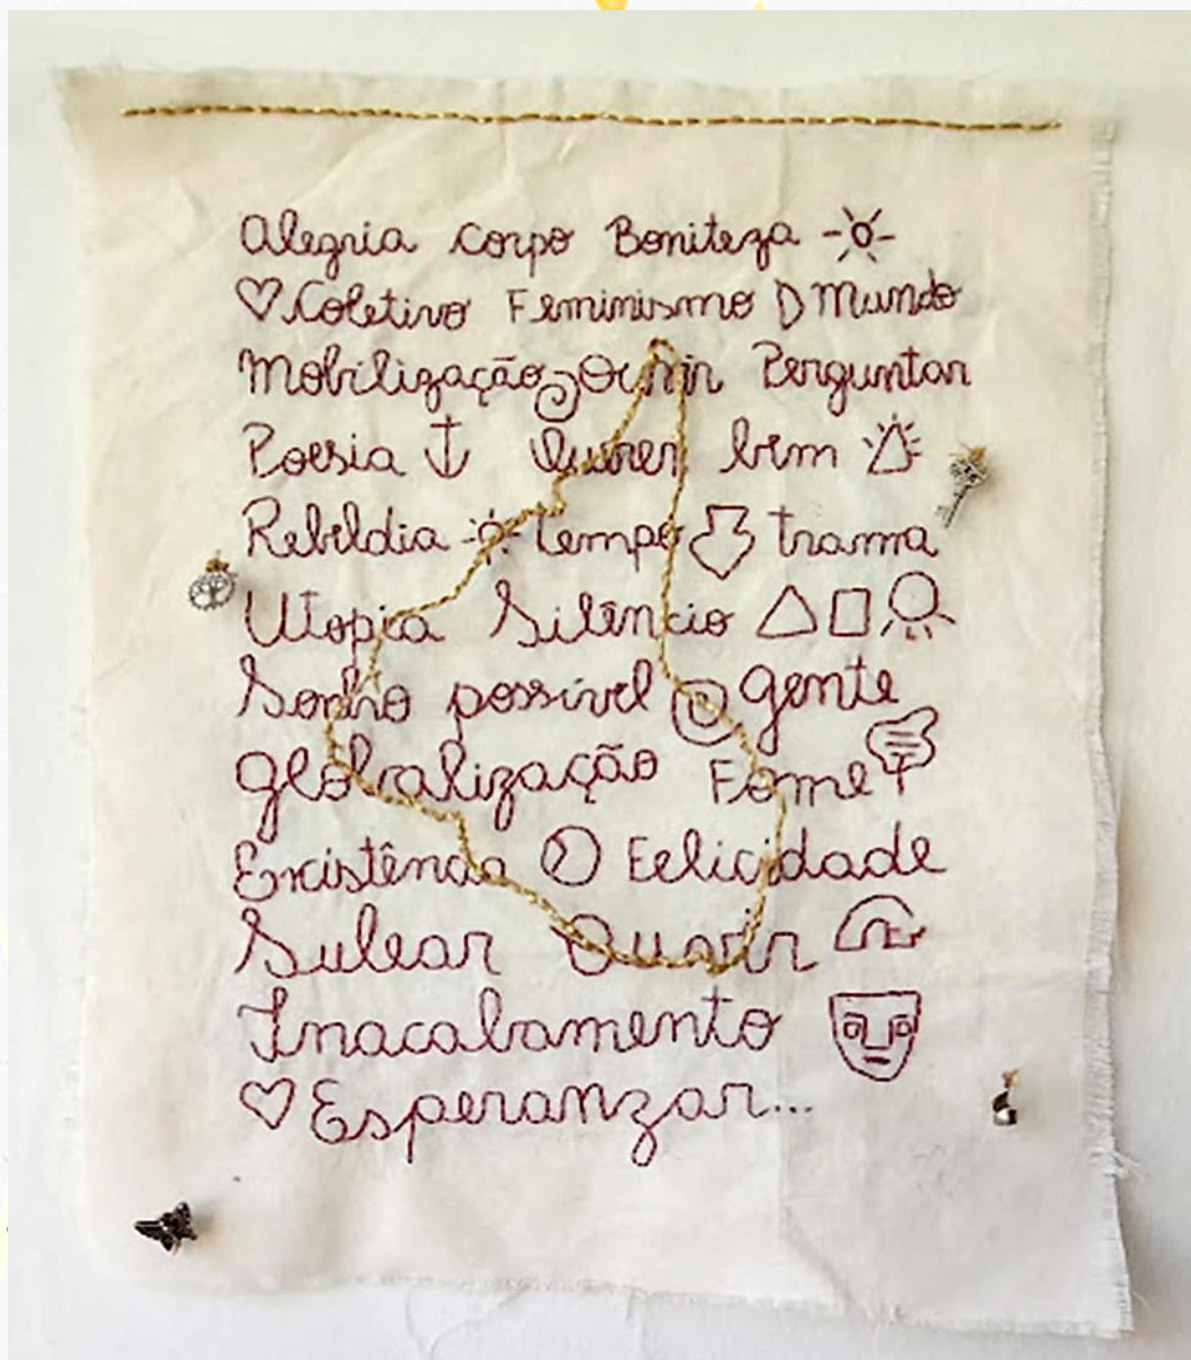 Alegria corpo Boniteza
Coletivo Feminismo Mundo
Mobilização Ouvir Perguntar
Poesia Querer bem
Rebeldia tempo trama
Utopia Silêncio
Sonho possível gente
Globalização Fome
Existência Felicidade
Sulear Ouvir
Inacabamento
Esperanzar...